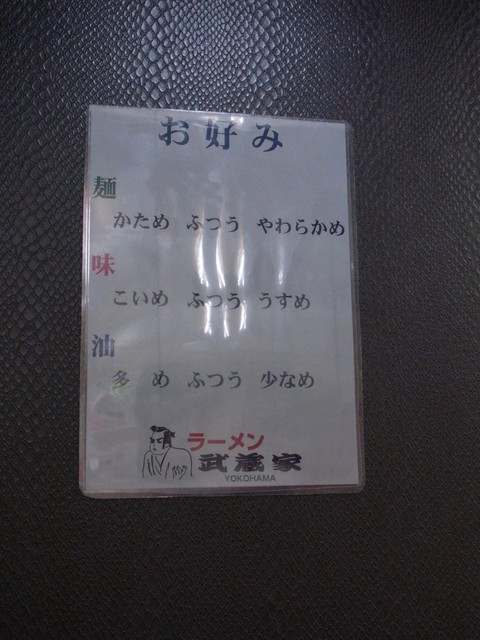 お好み
麺
かため ふつう やわらかめ
味
こいめ ふつう うすめ
油
多め ふつう 少なめ
ラーメン
武蔵家
YOKOHAMA